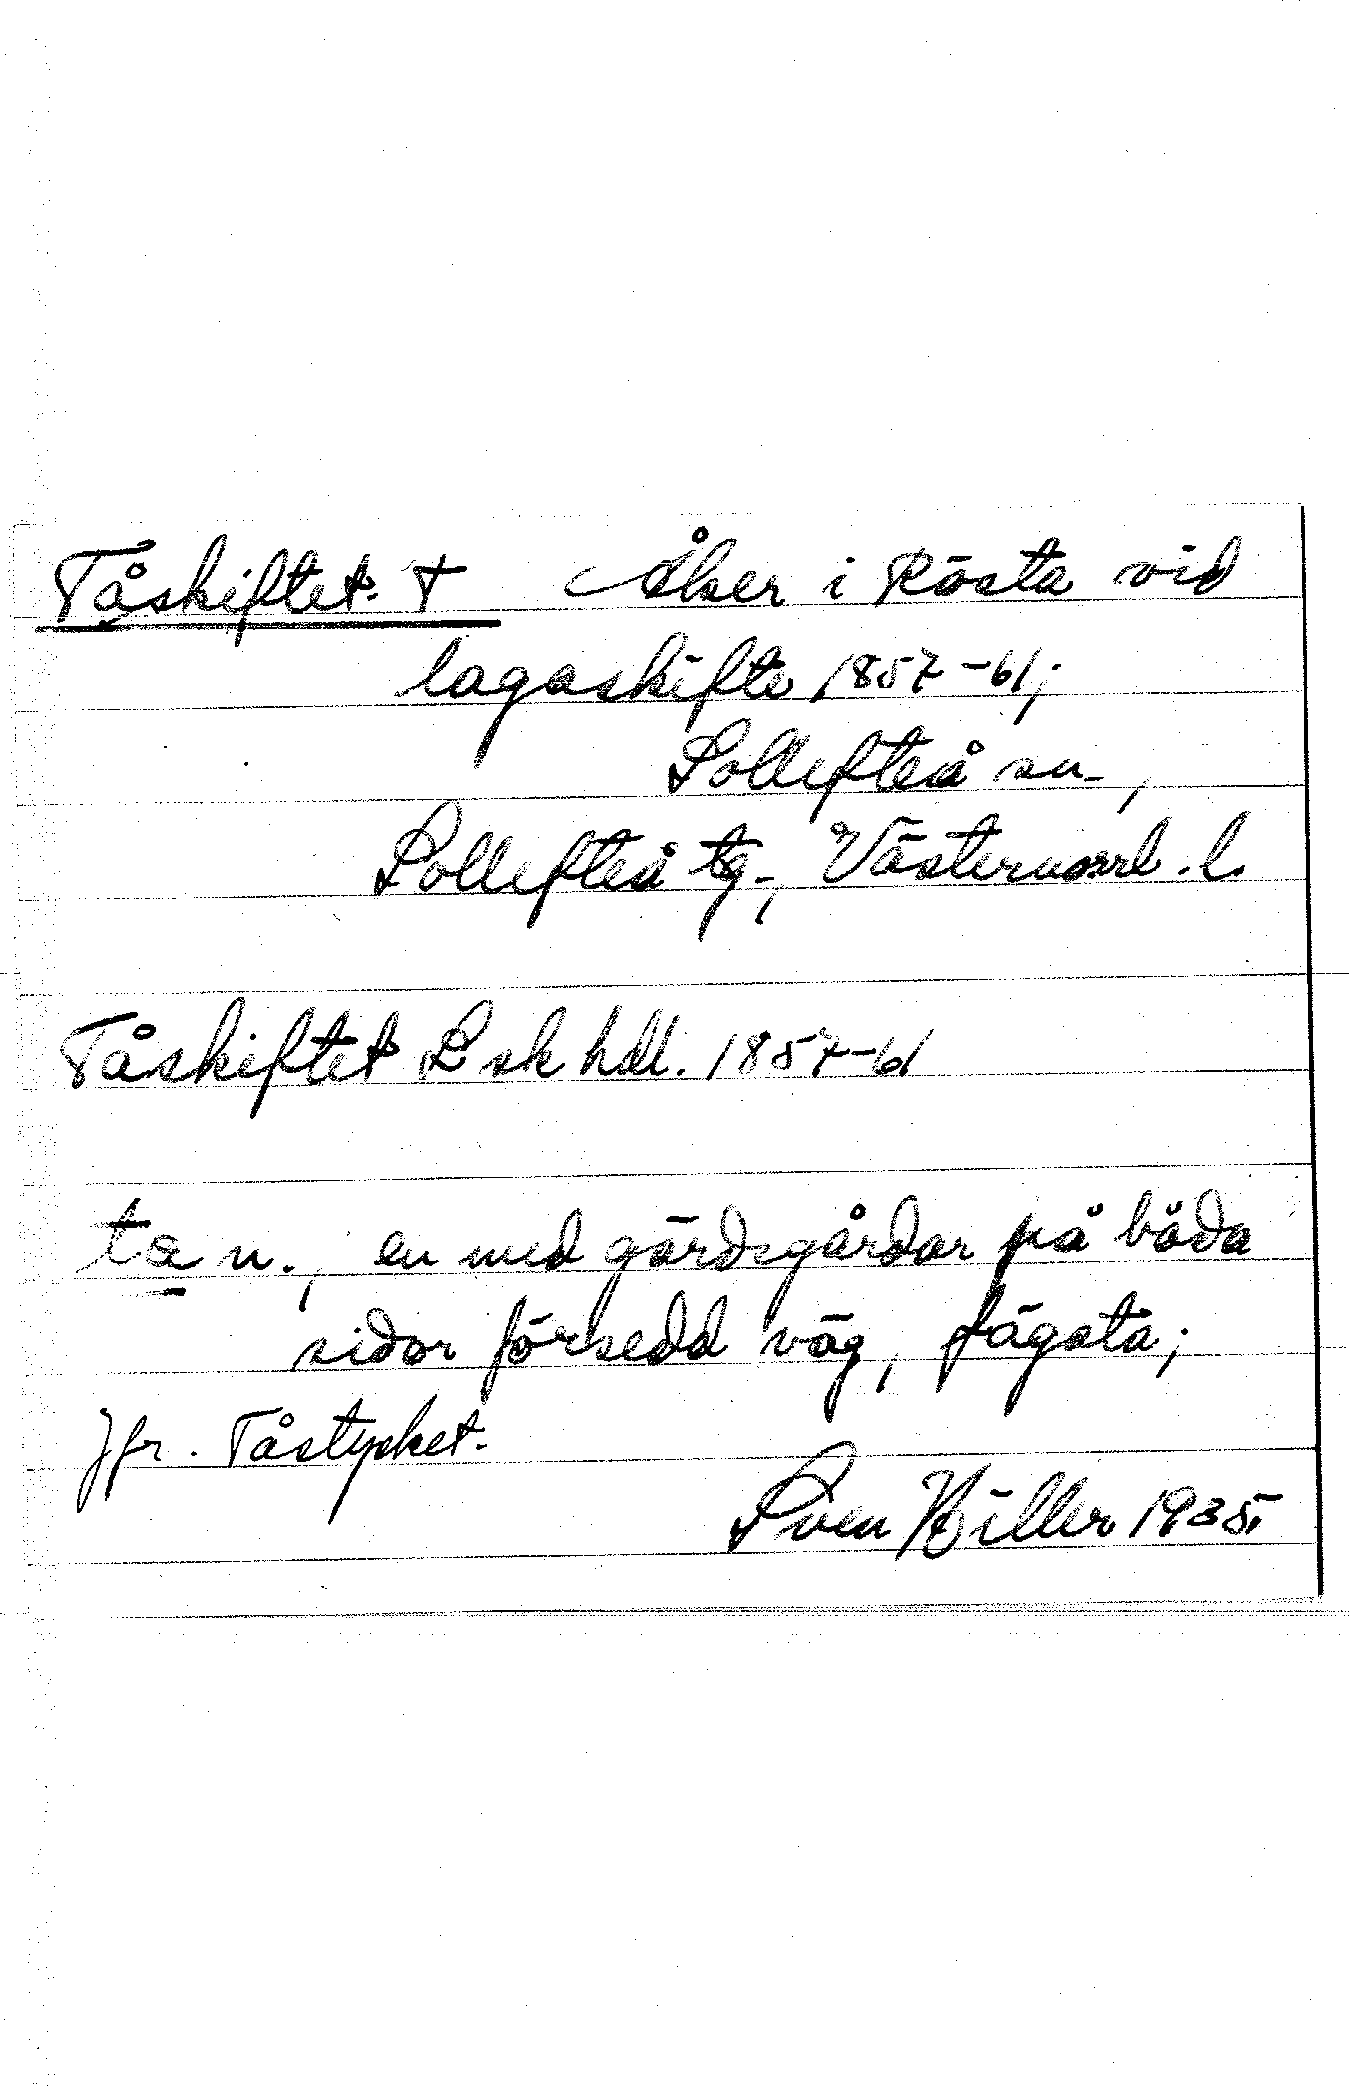 Tåskiftet. † Åker i Rösta vid
lagaskifte 1857-61;
Sollefteå sn.,
Sollefteå tg., Västernorrl. l.
Tåskiftet L sk hdl. 1857-61
ta n., en med gärdsgårdar på båda
sidor försedd väg, fägata;
Jfr. Tåstycket.
Sven Hiller 1935.